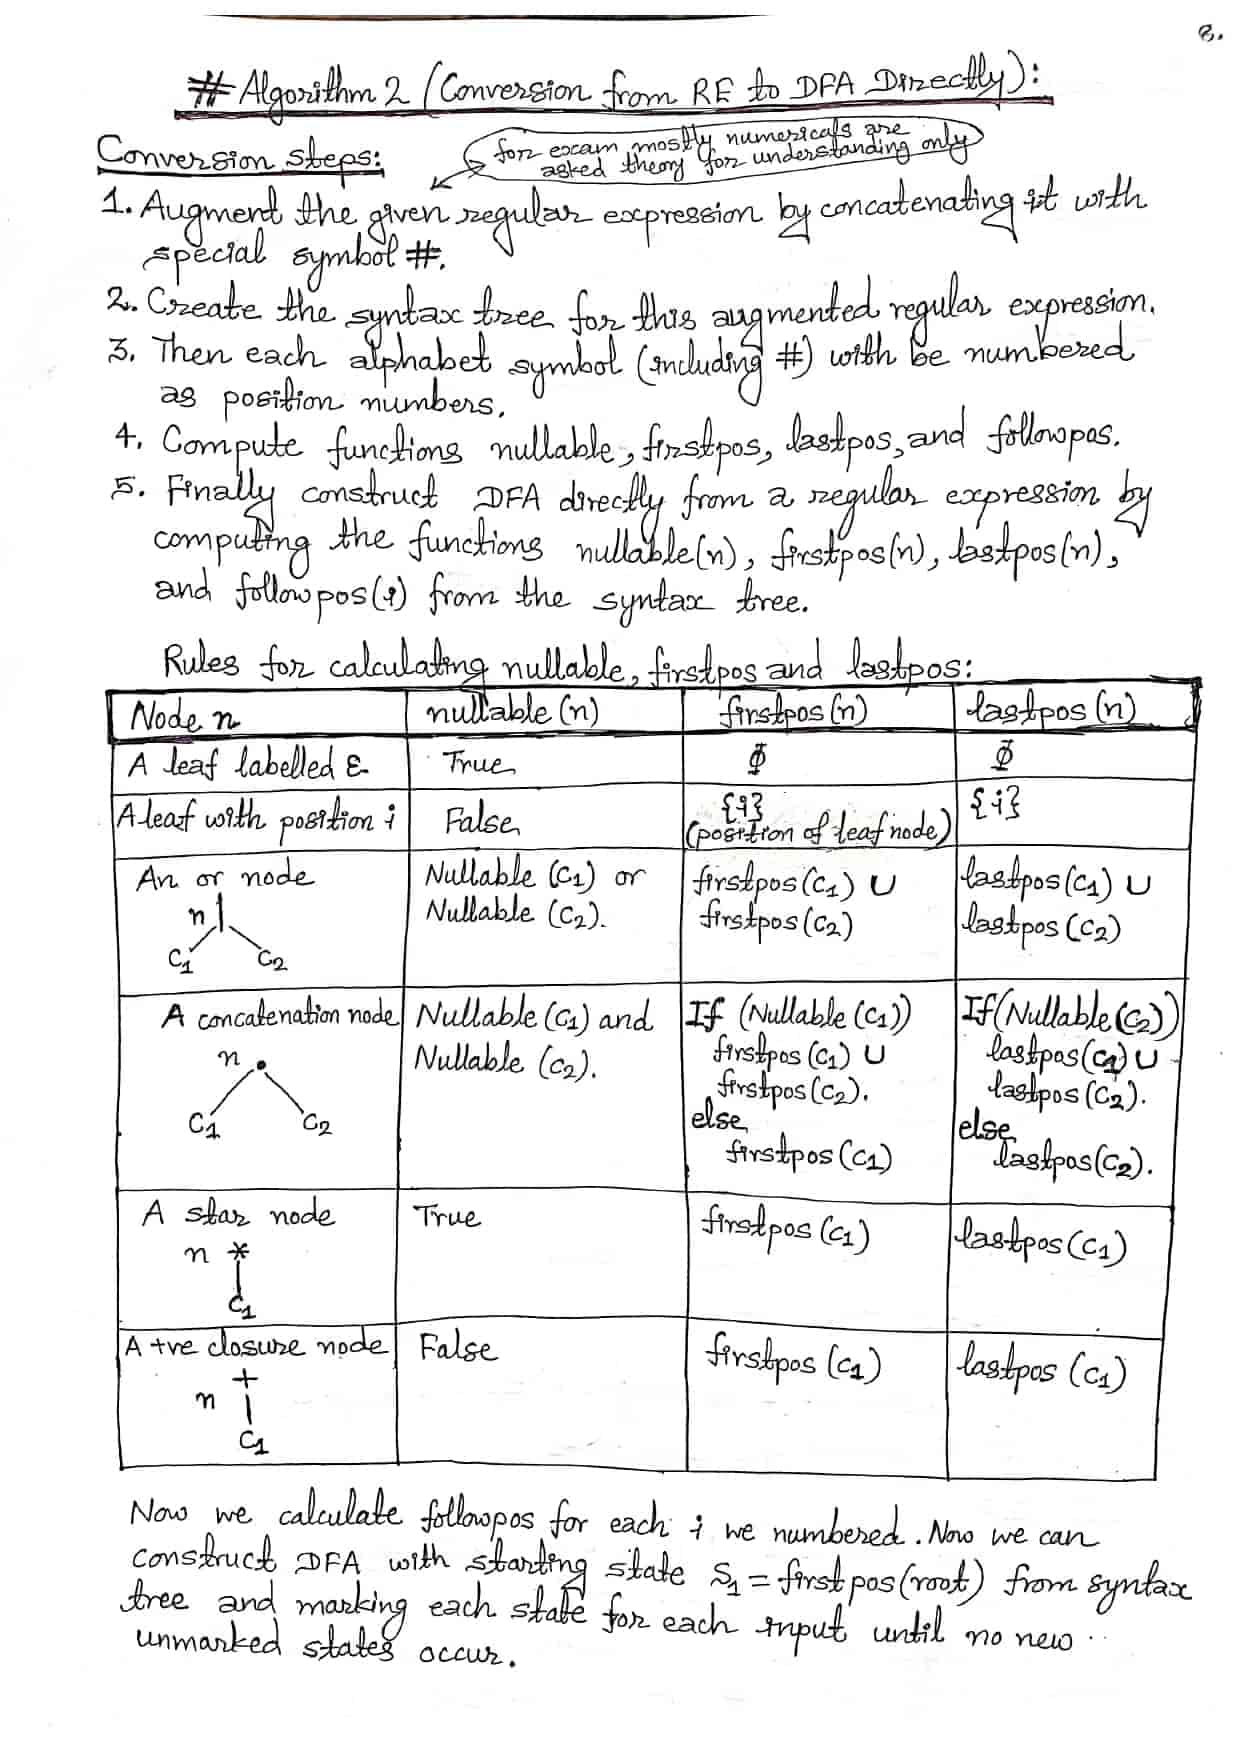 8.
# Algorithm 2 (Conversion from RE to DFA Directly):
Conversion steps:
for exam mostly numericals are
asked theory for understanding only
1. Augment the given regular expression by concatenating it with
special symbol #.
2. Create the syntax tree for this augmented regular expression.
3. Then each alphabet symbol (including #) with be numbered
as position numbers.
4. Compute functions nullable, firstpos, lastpos, and followpos.
5. Finally construct DFA directly from a regular expression by
computing the functions nullable(n), firstpos(n), lastpos(n),
and followpos(i) from the syntax tree.
Rules for calculating nullable, firstpos and lastpos:
Node n nullable (n) firstpos (n) lastpos (n)
A leaf labelled ε True Φ Φ
A leaf with position i False {i} {i}
(position of leaf node)
An or node Nullable (C1) or firstpos (C1) ∪ lastpos (C1) ∪
n | Nullable (C2). firstpos (C2) lastpos (C2)
C1 C2
A concatenation node Nullable (C1) and If (Nullable (C1)) If (Nullable (C2))
n • Nullable (C2). firstpos (C1) ∪ lastpos (C1) ∪
firstpos (C2). lastpos (C2).
C1 C2 else else
firstpos (C1) lastpos (C2).
A star node True firstpos (C1) lastpos (C1)
n *
C1
A +ve closure node False firstpos (C1) lastpos (C1)
n +
C1
Now we calculate followpos for each i we numbered. Now we can
construct DFA with starting state S1 = firstpos(root) from syntax
tree and marking each state for each input until no new
unmarked states occur.